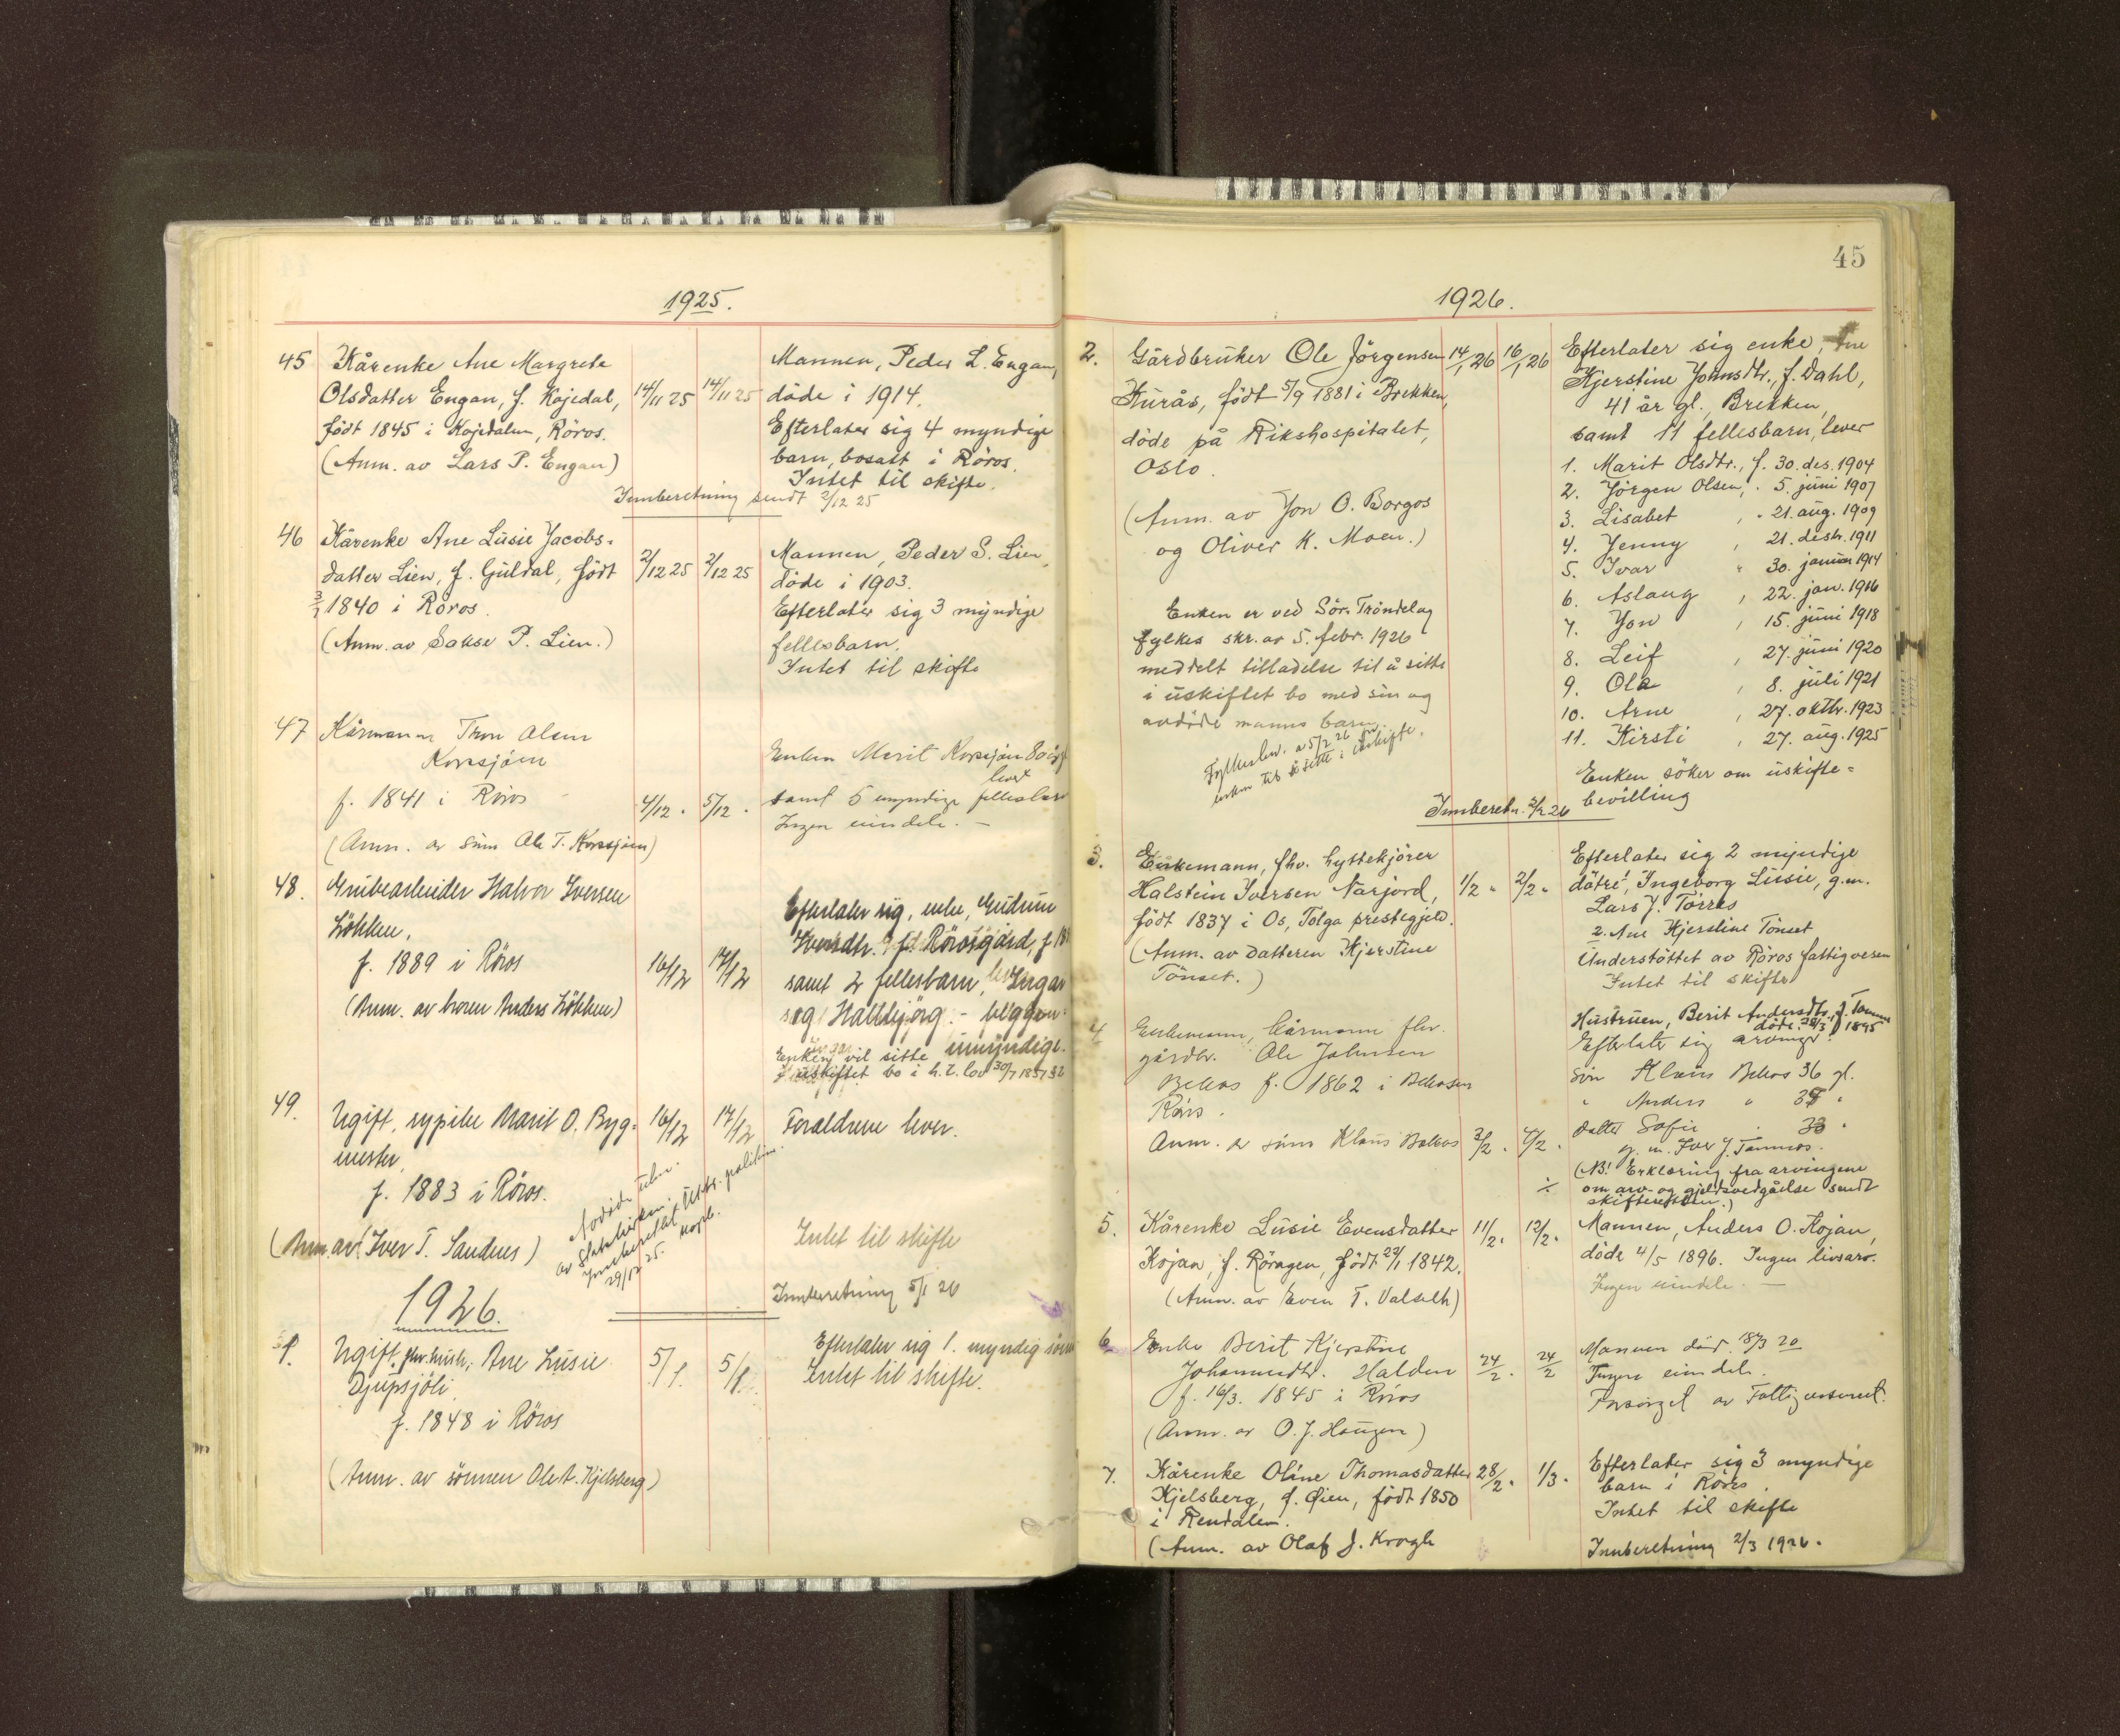 1925.
45 Kårenke Ane Margrete
Olsdatter Engan, f. Kojedal,
født 1845 i Kojedalen, Röros.
(Anm. av Lars P. Engan)
14/11 25 14/11 25
Mannen, Peder L. Engan,
döde i 1914.
Efterlater sig 4 myndige
barn, bosatt i Röros.
Intet til skifte.
Innberetning sendt 2/12 25
46 Kårenke Ane Lusie Jacobs-
datter Lien, f. Guldal, født
3/7 1840 i Röros.
(Anm. av P. Lien.)
2/12 25 2/12 25
Mannen, Peder S. Lien,
döde i 1903.
Efterlater sig 3 myndige
fellesbarn.
Intet til skifte
47 Kårmann Olsen
Korssjøen
f. 1841 i Röros
(Anm. av Ole T. Korssjøen)
4/12. 5/12.
Enken Marit Korssjøen 80 år
lever
samt 5 myndige
Ingen eiendele. —
48. Grubearbeider Halvor Iversen
Lökken,
f. 1889 i Röros
(Anm. av broren Anders Lökken)
16/12 17/12
Efterlater sig, enke, Gudrun
Iversdtr. f. Rörosgård,
samt 2 fellesbarn,
og Hallbjörg. - begge
umyndige.
Enken vil sitte
i uskiftet bo i h.t. lov 30/7 1851 § 2
49. Ugift, sypike Marit O. Byg-
mester,
f. 1883 i Röros.
(Anm. av Iver T. Sandnes)
16/12 17/12
Foreldrene lever.
Innberettet
29/12 25.
Intet til skifte
Innberetning 5/1 26
1926.
1. Ugift, fhv. hush. Ane Lusie
Djupsjöli
f. 1848 i Röros
(Anm. av sönnen Ole A. Kjelsberg)
5/1. 5/1.
Efterlater sig 1. myndig sönn
Intet til skifte.
45
1926.
2. Gårdbruker Ole Jörgensen
Kurås, født 5/9 1881 i Brekken,
döde på Rikshospitalet,
Oslo.
(Anm. av Jon O. Borgos
og Oliver K. Moen.)
14/1 26 16/1 26
Enken er ved Sör-Tröndelag
fylkes skr. av 5. febr. 1926
meddelt tilladelse til å sitte
i uskiftet bo med sin og
avdöde manns barn.
a 5/2 26
enken til å sitte i uskifte.
Efterlater sig enke,
Kjerstine Johnsdtr., f. Dahl,
41 år gl., Brekken,
samt 11 fellesbarn, lever
1. Marit Olsdtr., f. 30. des. 1904
2. Jörgen Olsen, . 5. juni 1907
3. Lisabet , . 21. aug. 1909
4. Jenny , 21. desbr. 1911
5. Ivar " 30. januar 1914
6. Aslaug , 22. jan. 1916
7. Jon , 15. juni 1918
8. Leif , 27. juni 1920
9. Ola , 8. juli 1921
10. Arne , 27. oktbr. 1923
11. Kirsti , 27. aug. 1925
Enken söker om uskifte-
bevilling
Innberetn. 2/2 26
3. Enkemann, fhv. hyttekjörer
Halstein Iversen Narjord,
født 1837 i Os, Tolga prestegjeld.
(Anm. av datteren Kjerstine
Tönset.)
1/2 " 2/2 "
Efterlater sig 2 myndige
dötre, 1. Ingeborg Lusie, g.m.
Lars J. Torres
2. Ane Kjerstine Tönset
Understöttet av Röros fattigvesen
Intet til skifte
4 Enkemann, kårmann fhv.
gårdbr. Ole Johnsen
Bekos f. 1862 i Bekosen
Röros.
Anm. av sönn Klaus Bekos
3/2. 4/2.
Hustruen, Berit Andersdtr., f.
döde 1895
Efterlater sig arvinger:
Sön Klaus Bekos 36 gl.
" Anders "
datter Sofie
g. m. Iver J. Tamnes.
(NB! Erklæring fra arvingene
÷ om arv- og gjeldsvedgåelse sendt
skifteretten.)
5. Kårenke Lusie Evensdatter
Kojan, f. Röragen, født 1842.
(Anm. av Even T. Valseth)
11/2. 12/2.
Mannen, Anders O. Kojan,
döde 4/5 1896. Ingen livsarv.
Ingen eiendele. —
6 Enke Berit Kjerstine
Johannesdtr. Halden
f. 16/3. 1845 i Röros
(Anm. av O. J. Haugen)
24/2. 24/2
Mannen död 18/3 20
Ingen eiendele.
Forsörget av Fattigvesenet.
7. Kårenke Oline Thomasdatter
Kjelsberg, f. Öien, født 1850
i Rendalen.
(Anm. av Olaf J. Krogh
28/2. 1/3.
Efterlater sig 3 myndige
barn i Röros.
Intet til skifte
Innberetning 2/3 1926.